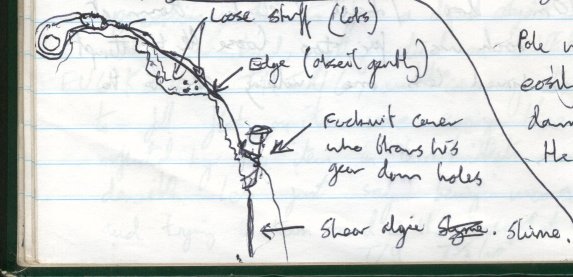 Loose stuff (lots)
Edge (abseil gently)
Fuckwit caver
who throws his
gear down holes
Shear algie slime.
Pole
easily
dam
He